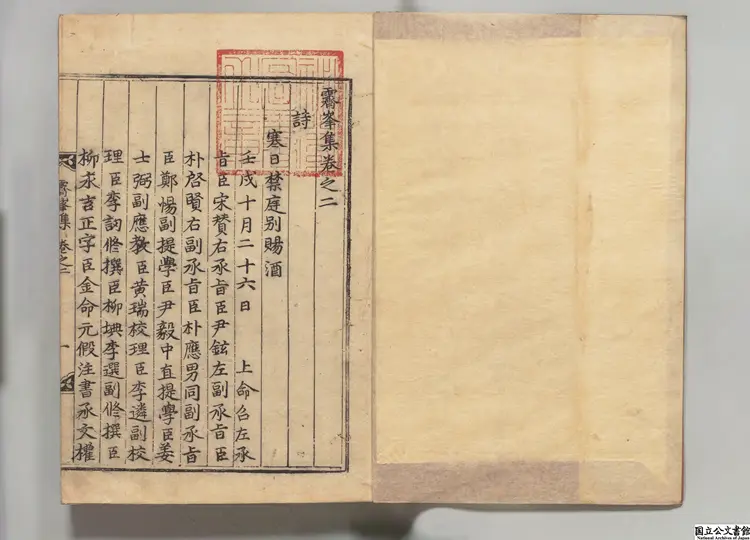 霽峯集卷之二
詩
寒日禁庭別賜酒
壬戌十月二十六日 上命召左承
旨臣宋賛右承旨臣尹鉉左副承旨臣
朴啓賢右副承旨臣朴應男同副承旨
臣鄭惕副提學臣尹毅中直提學臣姜
士弼副應教臣黄瑞校理臣李遴副校
理臣李訒修撰臣柳㙉李選副修撰臣
柳永吉正字臣金命元假注書承文權
霽峯集 卷之二 一
国立公文書館
National Archives of Japan